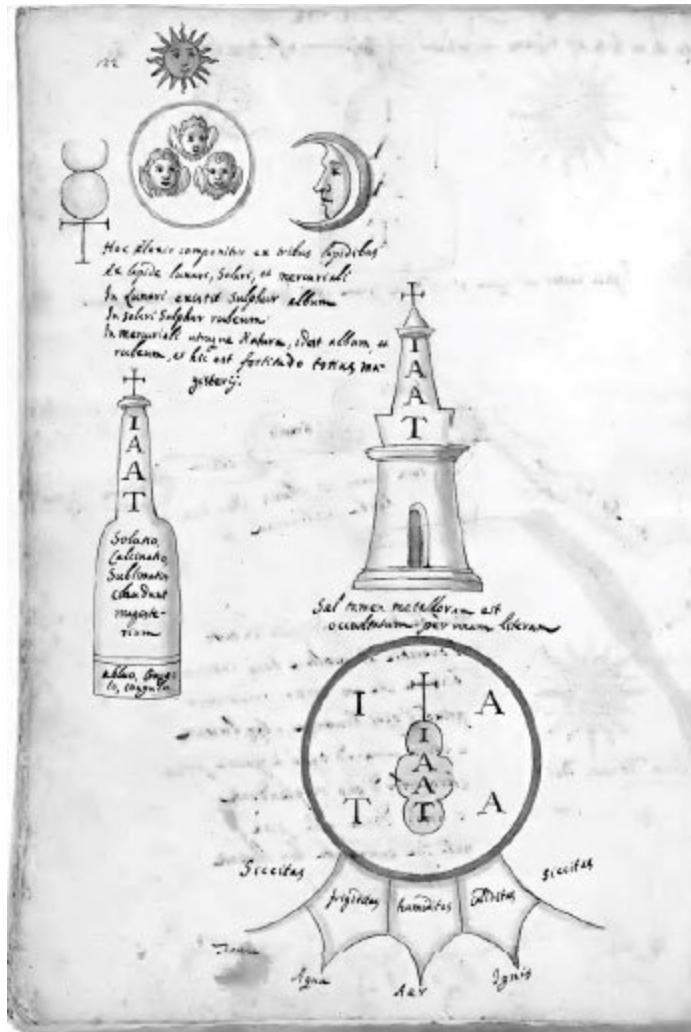 122
Hac elixir componitur ex tribus lapidibus
ex lapide lunari, Solari, et mercuriali
In Lunari existit Sulphur album
In solari Sulphur rubeum
In mercuriali utraque Natura, idest album, et
rubeum, et hic est fortitudo totius ma-
gisterij.
I
A
A
T
I
A
A
T
Solutio,
Calcinatio,
Sublimatio
claudunt
magiste-
rium
abluo,
coagulo
Sal tamen metallorum est
occultatum per unam literam
I A
I
A
A
T
T A
Siccitas frigiditas humiditas caliditas siccitas
Terra
Aqua Aer Ignis